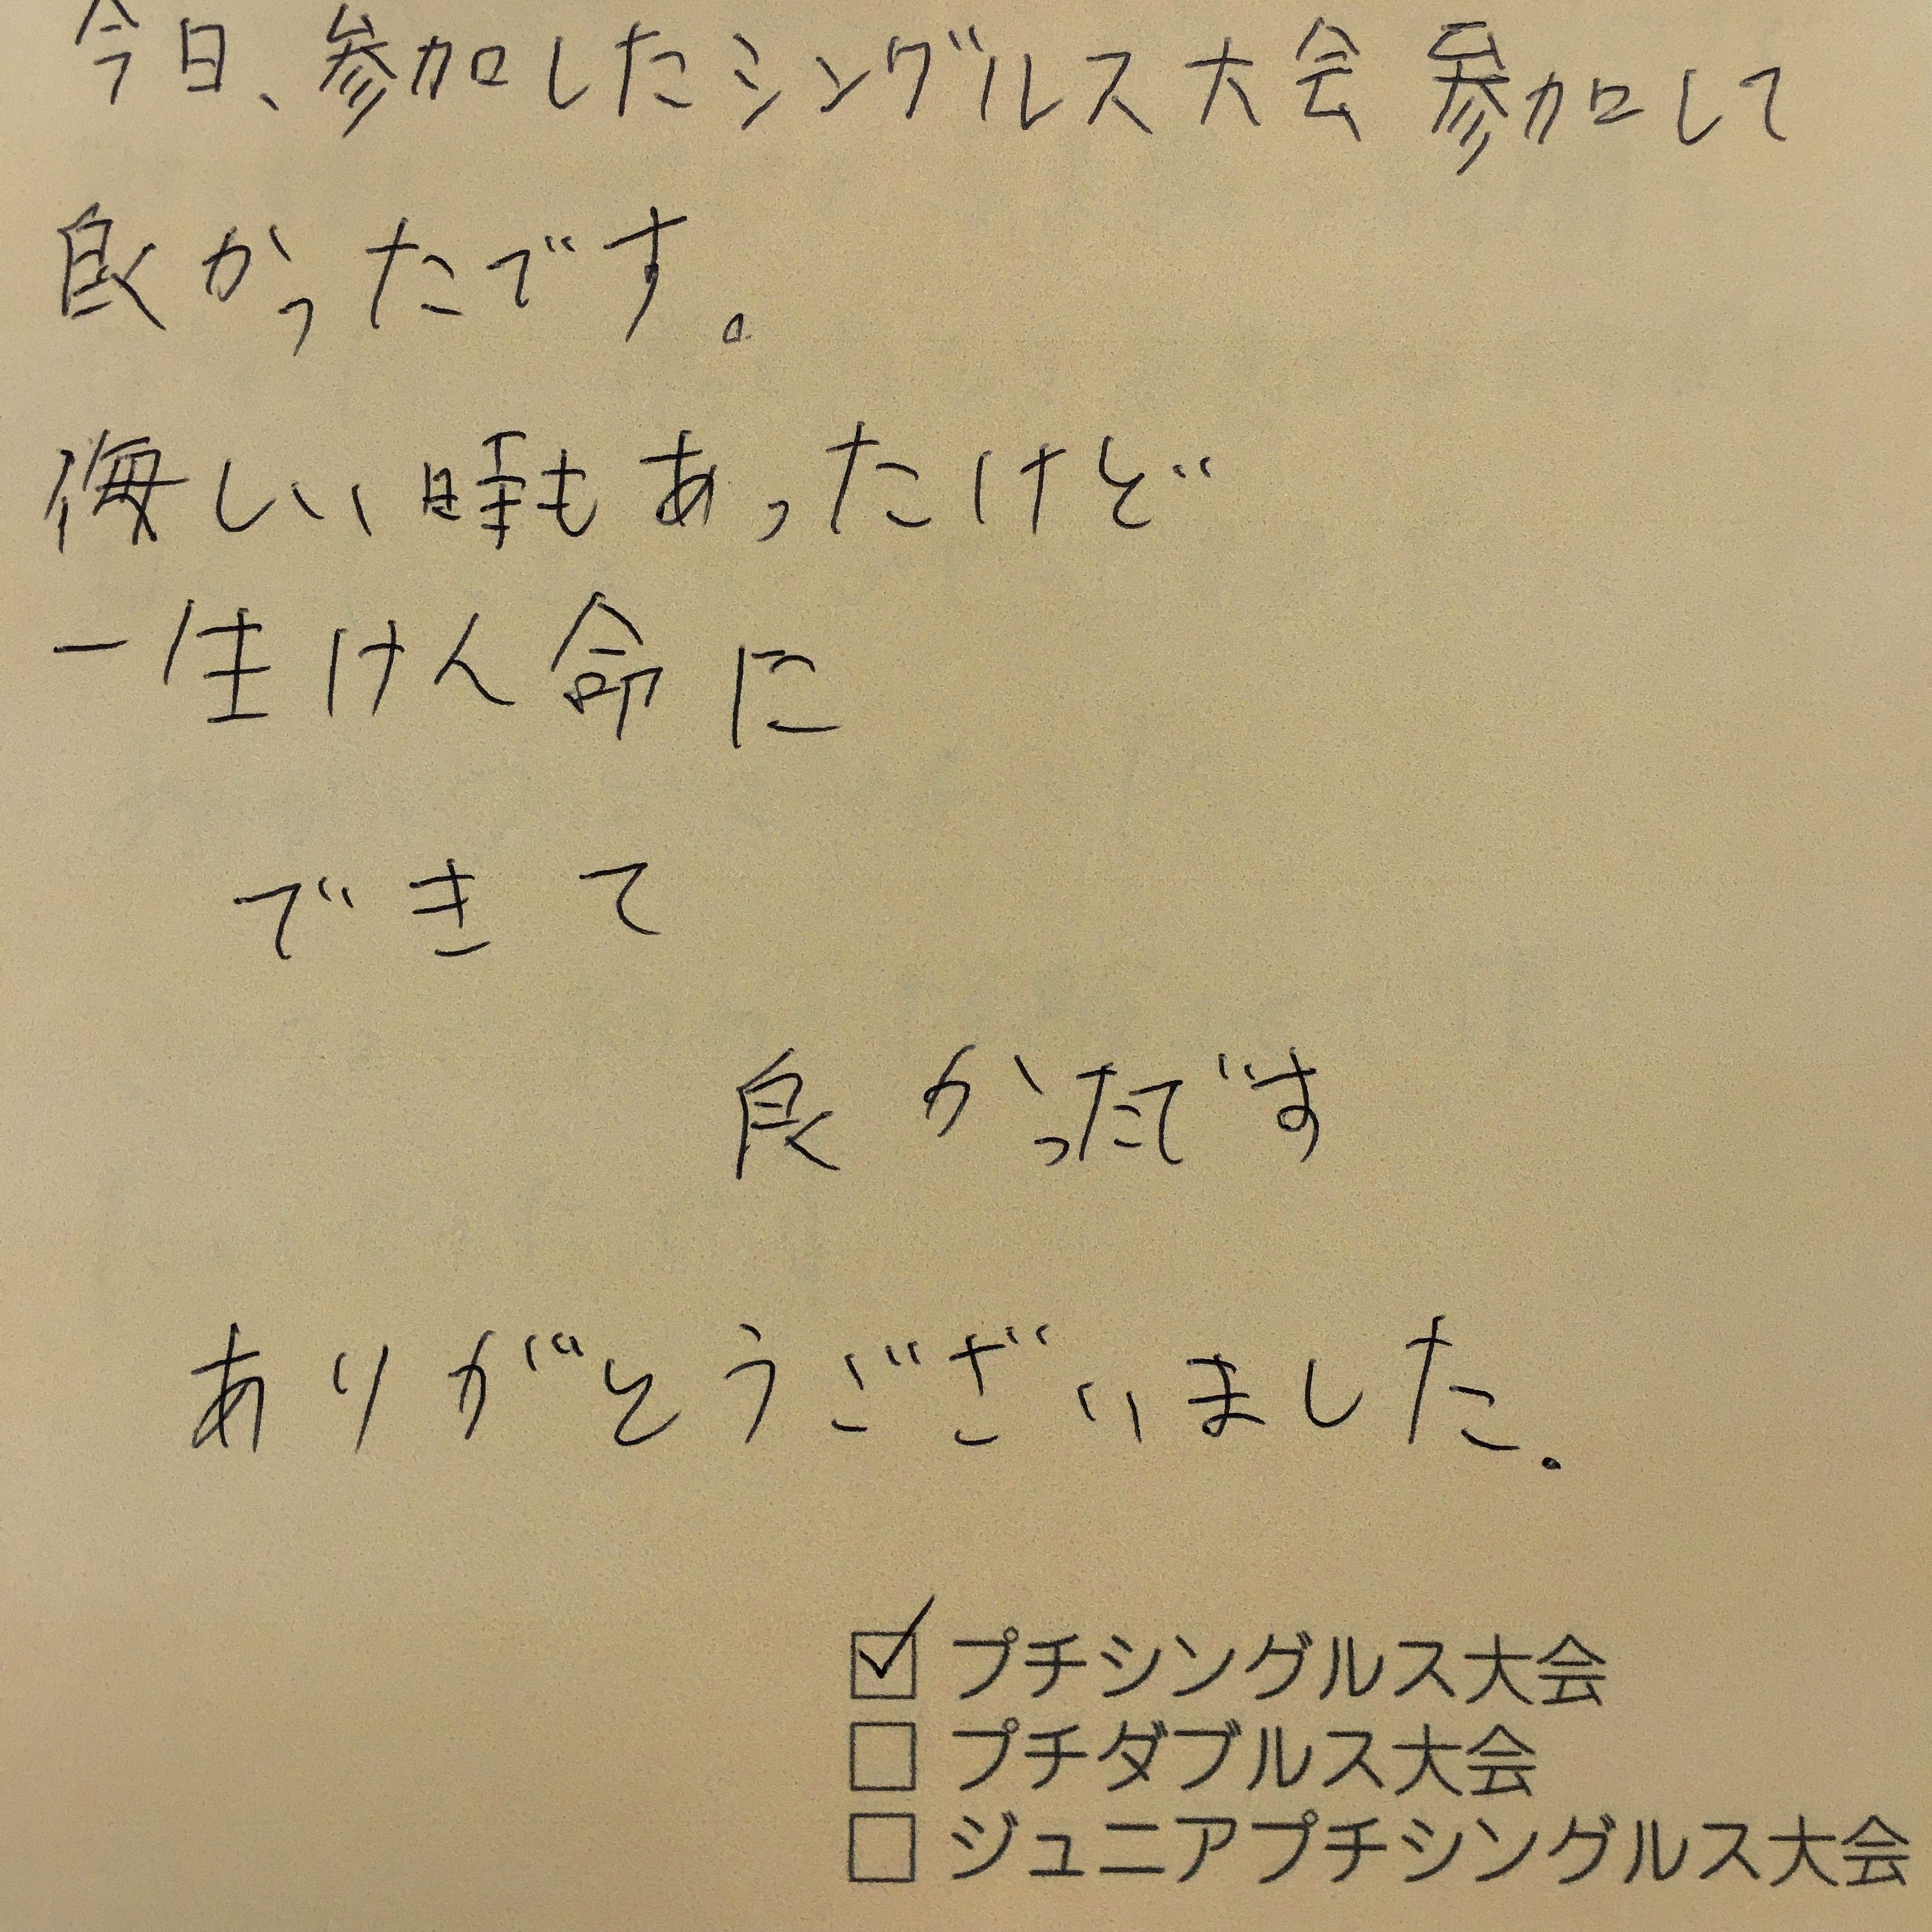 今日、参加したシングルス大会参加して
良かったです。
悔しい時もあったけど
一生けん命に
できて
良かったです
ありがとうございました.
☑ プチシングルス大会
☐ プチダブルス大会
☐ ジュニアプチシングルス大会